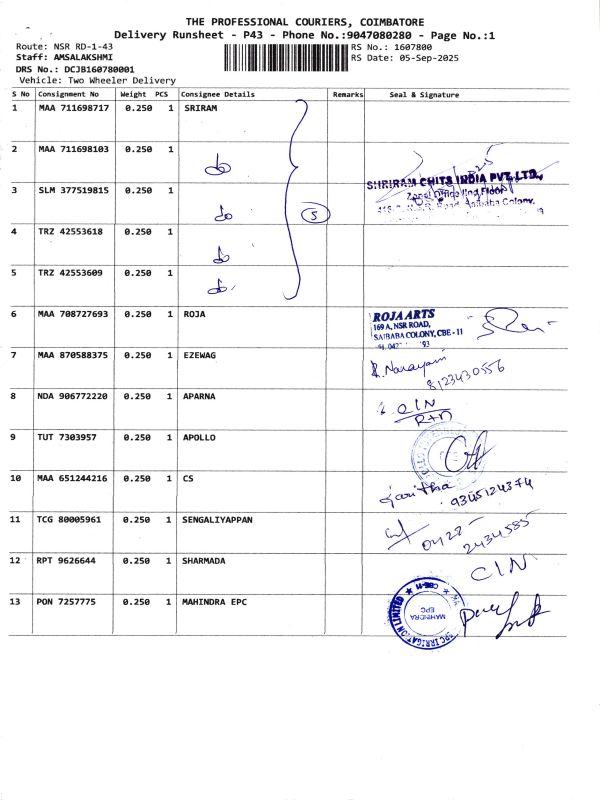 THE PROFESSIONAL COURIERS, COIMBATORE
Delivery Runsheet - P43 - Phone No.:9047080280 - Page No.:1
Route: NSR RD-1-43 RS No.: 1607800
Staff: AMSALAKSHMI RS Date: 05-Sep-2025
DRS No.: DCJB160780001
Vehicle: Two Wheeler Delivery
S No Consignment No Weight PCS Consignee Details Remarks Seal & Signature
1 MAA 711698717 0.250 1 SRIRAM
2 MAA 711698103 0.250 1
SHRIRAM CHITS INDIA PVT.LTD.,
3 SLM 377519815 0.250 1
Zonal Office IInd Floor
Road, Saibaba Colony,
5
4 TRZ 42553618 0.250 1
5 TRZ 42553609 0.250 1
6 MAA 708727693 0.250 1 ROJA
ROJA ARTS
169 A, NSR ROAD,
SAIBABA COLONY, CBE - 11
7 MAA 870588375 0.250 1 EZEWAG
R. Narayani
8123430556
8 NDA 906772220 0.250 1 APARNA
CIN
R+n
9 TUT 7303957 0.250 1 APOLLO
10 MAA 651244216 0.250 1 CS
9345124374
11 TCG 80005961 0.250 1 SENGALIYAPPAN
0422
2434585
12 RPT 9626644 0.250 1 SHARMADA
CIN
13 PON 7257775 0.250 1 MAHINDRA EPC
MAHINDRA
EPC